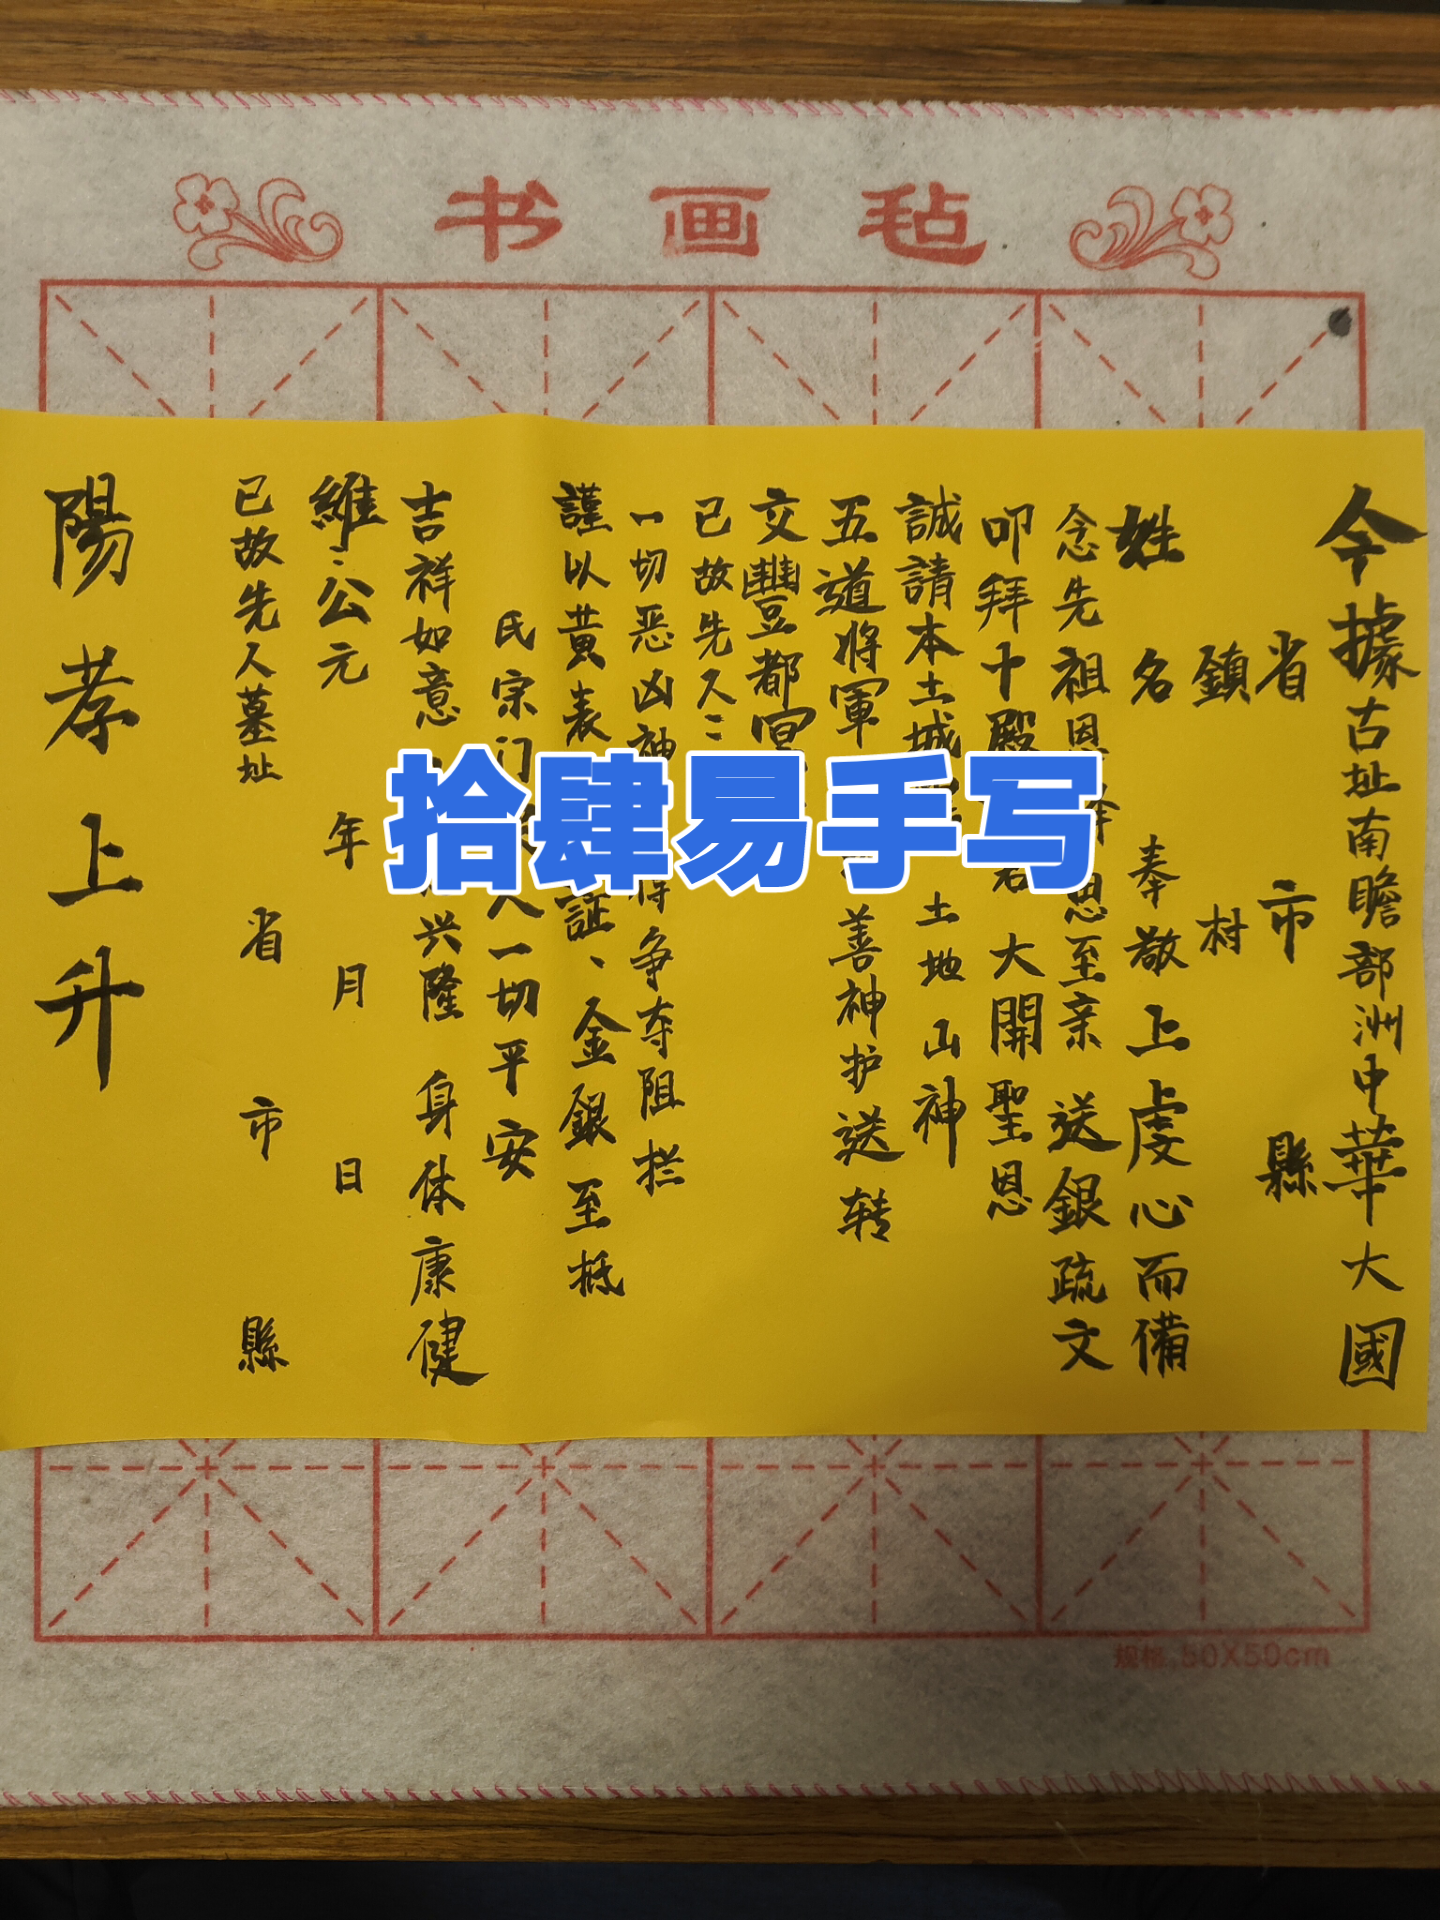 书画毡
今據古址南瞻部洲中華大國
省 市 縣
鎮 村
姓名 奉敬上虔心而備
念先祖恩 恩至亲 送銀疏文
叩拜十殿 君 大開聖恩
誠請本土城 土地山神
五道将軍 善神护送转
交豐都冥
已故先人:
一切恶凶神 争夺阻拦
謹以黄表 証、金銀至抵
氏宗门 人一切平安
吉祥如意 兴隆 身体康健
維:公元 年 月 日
已故先人墓址 省 市 縣
陽孝上升
拾肆易手写
规格.50X50cm